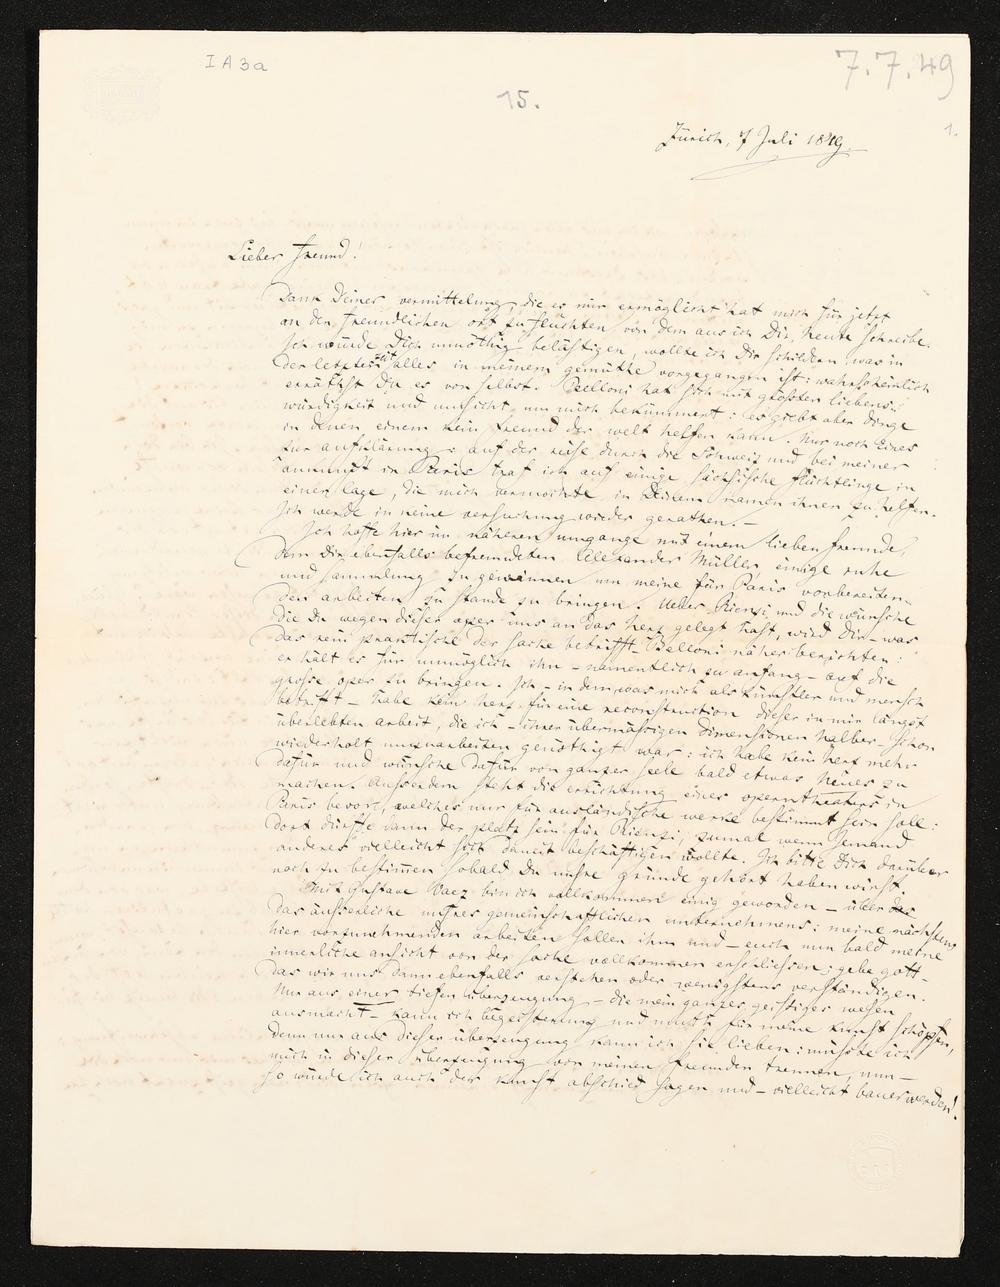 I A 3a
7.7.49
15.
1.
Zürich, 7 Juli 1849.
Lieber Freund!
Dank Deiner vermittelung, die es mir ermöglicht hat mich für jetzt
an den freundlichen ort zu flüchten von dem aus ich Dir heute schreibe.
Ich würde Dich unnöthig belästigen, wollte ich Dir schildern was in
der letzten zeit alles in meinem gemüthe vorgegangen ist: wahrscheinlich
erräthst Du es von selbst. Belloni hat sich mit grösster liebens-
würdigkeit und umsicht um mich bekümmert: es giebt aber dinge
in denen einem kein freund der welt helfen kann. Nur noch Eines
zur aufklärung: auf der reise durch die Schweiz und bei meiner
ankunft in Paris traf ich auf einige sächsische flüchtlinge in
einer lage, die mich vermochte in Deinem namen ihnen zu helfen.
Ich werde in keine versuchung wieder gerathen. –
Ich hoffe hier im näheren umgange mit einem lieben freunde,
dem Dir ebenfalls befreundeten Alexander Müller einige ruhe
und sammlung zu gewinnen um meine für Paris vorbereiten-
den arbeiten zu stande zu bringen. Ueber Rienzi und die wünsche
die Du wegen dieser oper uns an das herz gelegt hast, wird Dir – was
das rein praktische der sache betrifft – Belloni näher berichten:
er hält es für unmöglich ihn – namentlich zu anfang – auf die
grosse oper zu bringen. Ich – in dem was mich als künstler und mensch
betrifft – habe kein herz für eine reconstruction dieser in mir längst
überlebten arbeit, die ich – ihrer übermässigen dimensionen halber – schon
wiederholt umzuarbeiten genöthigt war: ich habe kein herz mehr
dafür und wünsche dafür von ganzer seele bald etwas neues zu
machen. Ausserdem steht die errichtung eines operntheaters in
Paris bevor, welches nur für ausländische werke bestimmt sein soll:
dort dürfte dann der platz sein für Rienzi, zumal wenn Jemand
anderes vielleicht sich damit beschäftigen wollte. Ich bitte Dich darüber
noch zu bestimmen sobald Du unsre gründe gehört haben wirst.
Mit Gustave Vaez bin ich vollkommen einig geworden – über das
das äusserliche unsres gemeinschaftlichen unternehmens: meine nächstens
hier vorzunehmenden arbeiten sollen ihm und – euch nun bald meine
innerliche ansicht von der sache vollkommen erschliessen; gebe gott
das wir uns dann ebenfalls verstehen oder wenigstens verständigen.
Nur aus einer tiefen überzeugung – die mein ganzes geistiges wesen
ausmacht – kann ich begeisterung und muth für meine kunst schöpfen,
denn nur aus dieser überzeugung kann ich sie lieben: müsste ich
mich in dieser überzeugung von meinen freunden trennen, nun –
so würde ich auch der kunst abschied sagen und – vielleicht bauer werden!